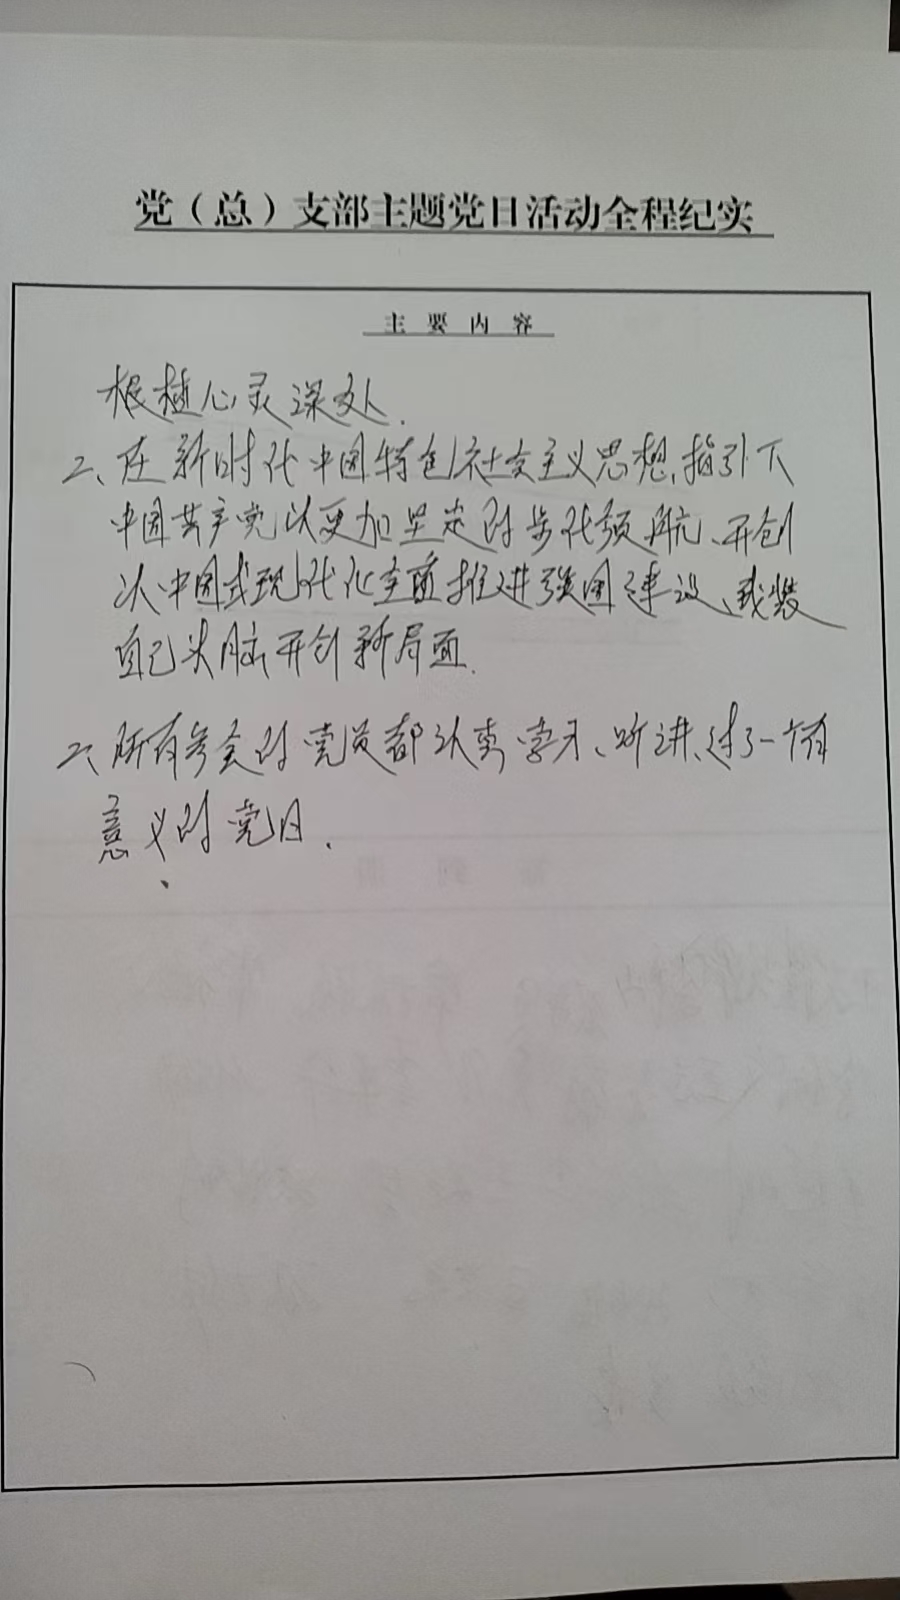 党（总）支部主题党日活动全程纪实
主要内容
根植心灵深处.
二、在新时代中国特色社会主义思想指引下
中国共产党以更加坚定的步伐领航、开创
以中国式现代化全面推进强国建设、武装
自己头脑开创新局面.
二、所有参会的党员都认真学习、听讲、过了一个有
意义的党日.